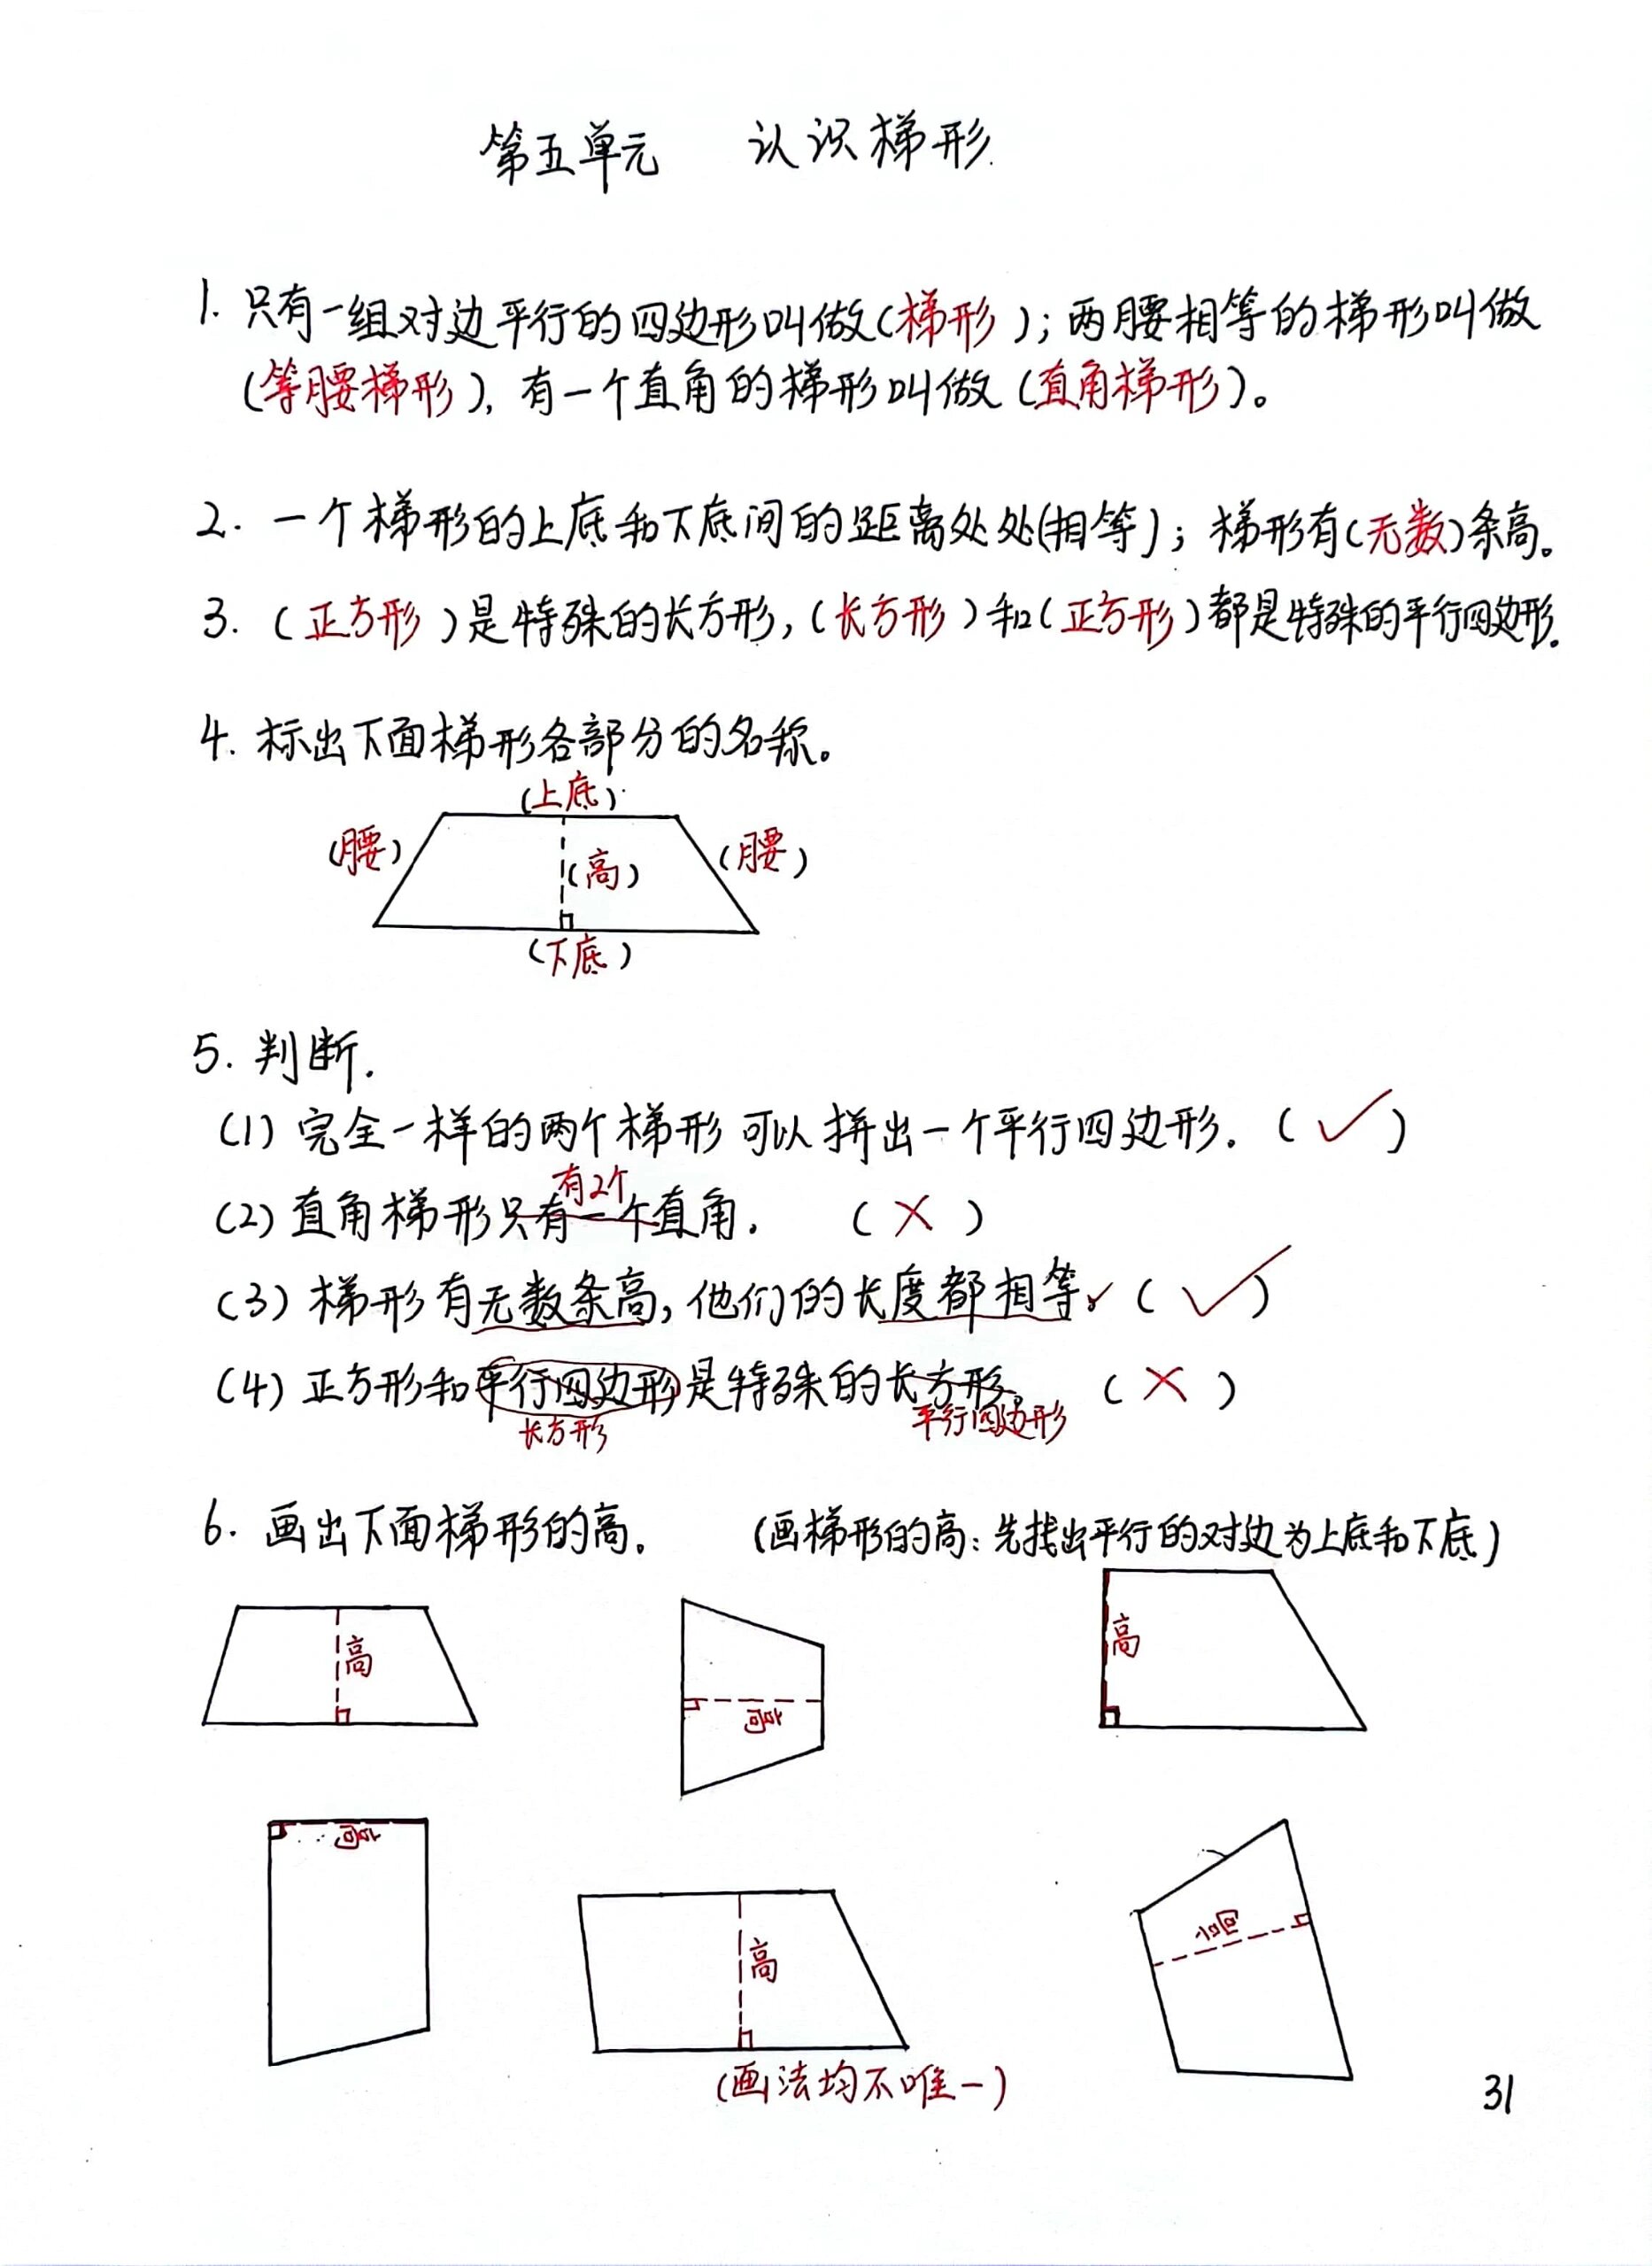 第五单元 认识梯形.
1. 只有一组对边平行的四边形叫做(梯形);两腰相等的梯形叫做
(等腰梯形),有一个直角的梯形叫做(直角梯形)。
2. 一个梯形的上底和下底间的距离处处(相等);梯形有(无数)条高。
3. (正方形)是特殊的长方形,(长方形)和(正方形)都是特殊的平行四边形.
4. 标出下面梯形各部分的名称。
(上底)
(腰) (高) (腰)
(下底)
5. 判断.
(1) 完全一样的两个梯形可以拼出一个平行四边形. (✓)
有2个
(2) 直角梯形只有一个直角. (×)
(3) 梯形有无数条高,他们的长度都相等. (✓)
(4) 正方形和平行四边形是特殊的长方形。 (×)
长方形 平行四边形
6. 画出下面梯形的高。 (画梯形的高:先找出平行的对边为上底和下底)
高 高 高
高 高 高
(画法均不唯一)
31